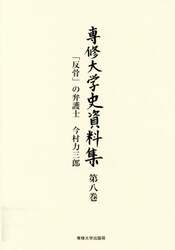 専修大学史資料集
第八巻
「反骨」の弁護士 今村力三郎
専修大学出版局